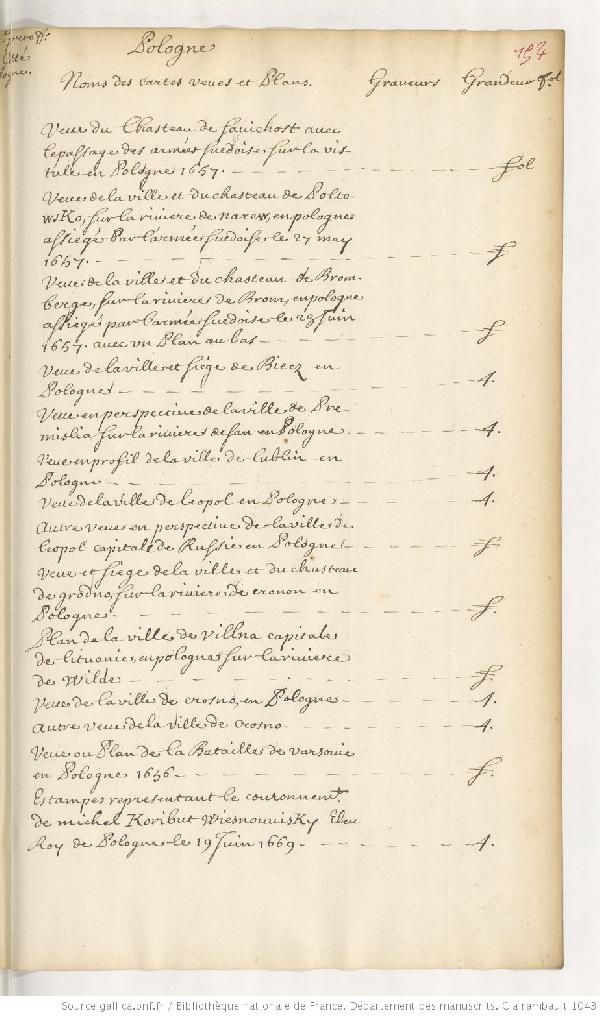 Pologne
154
Noms des cartes veues et Plans. Graveurs Grandeur
Veue du Chasteau de Savichost avec
le passage des armées suedoise sur la vis-
tule en Pologne 1657. fol
Veue de la ville et du chasteau de Polto-
wsko, sur la riviere de narew, en pologne
assiegé Par l'armée suedoise le 27 may
1657. f.
Veue de la ville et du chasteau de Brom-
berge, sur la riviere de Brom, en pologne
assiegée par l'armée suedoise le 28 Juin
1657. avec un Plan au bas f
Veue de la ville et siége de Biecz en
Pologne 4.
Veue en perspective de la ville de Pre-
mislia sur la riviere de san en Pologne. 4.
Veue en profil de la ville de Lublin en
Pologne 4.
Veue de la ville de leopol en Pologne 4.
Autre veue en perspective de la ville de
leopol capitale de Russie en Pologne f
Veue et siege de la ville et du chasteau
de grodno, sur la riviere de cronon en
Pologne f.
Plan de la ville de Villna capitale
de lituanie, en pologne sur la riviere
de Wilde f.
Veue de la ville de crosno, en Pologne 4.
Autre veue de la ville de Crosno 4.
Veue ou Plan de la Bataille de varsovie
en Pologne 1656 f.
Estampe representant le couronnemt.
de michel Koribut Wiesnowisky Eleu
Roy de Pologne le 19 Juin 1669. 4.
Source gallica.bnf.fr / Bibliothèque nationale de France. Département des manuscrits. Clairambault 1043